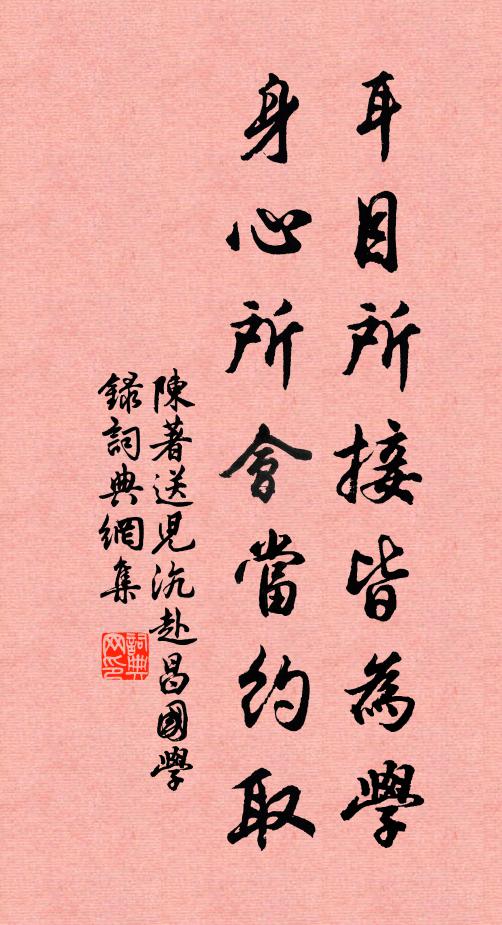 耳目所接皆為學
身心所會當約取
陳著送兒沆赴昌國學
錄詞典網集
詞典網印